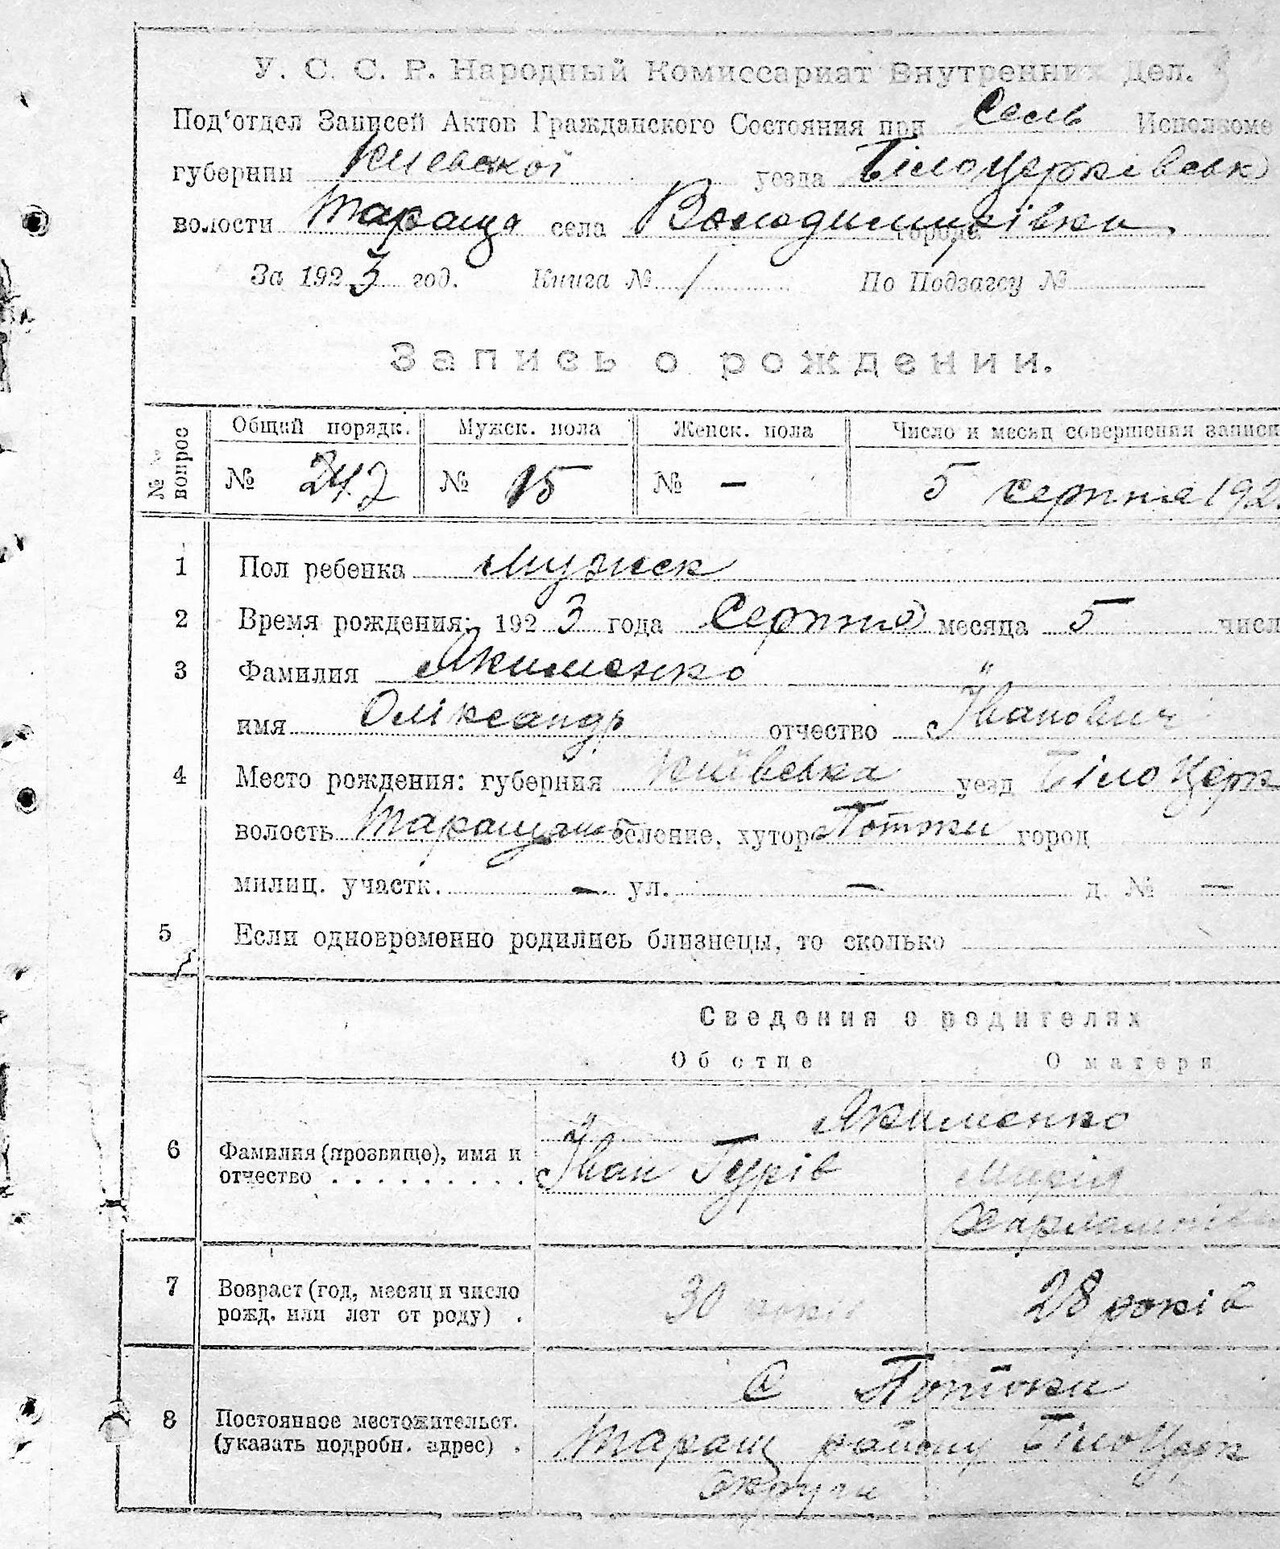 У. С. С. Р. Народный Комиссариат Внутренних Дел.
Под'отдел Записей Актов Гражданского Состояния при Сель Исполкоме
губернии Киевської уезда БілоЦерківськ
волости Тараща села Володимирівка города
За 1923 год. Книга № 1 По Подзагсу №
Запись о рождении.
№ № вопрос Общий порядк. Мужск. пола Женск. пола Число и месяц совершения записи
№ 242 № 15 № - 5 серпня 192
1 Пол ребенка Мужск
2 Время рождения: 1923 года Серпня месяца 5 числ
3 Фамилия Якименко
имя Оліксандр отчество Їванович
4 Место рождения: губерния Київська уезд БілоЦерк
волость селение, хутор Потоки город
милиц. участк. - ул. - д. № -
5 Если одновременно родились близнецы, то сколько
Сведения о родителях
Об отце О матери
Якименко
6 Фамилия (прозвище), имя и отчество Їван Гурів Марія
7 Возраст (год, месяц и число рожд. или лет от роду). 30 років 28 років
С Потоки
8 Постоянное местожительст. (указать подробн. адрес). Таращ району БілоЦерк
округи